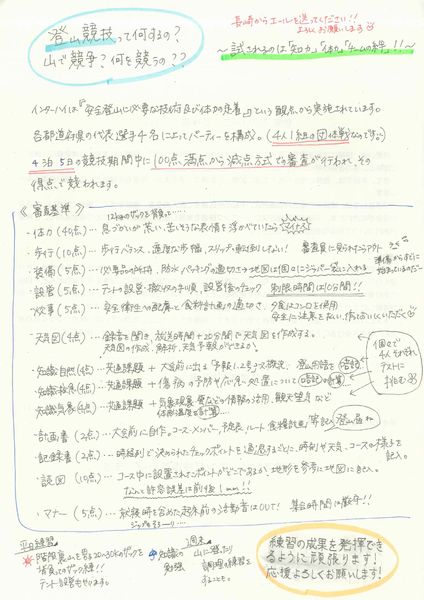 登山競技って何するの?
山で競争?何を競うの??
長崎からエールを送ってください!!
よろしくお願いします
～試されるのは「知力」「体力」「チームの絆」!!～
インターハイは『安全登山に必要な技術及び体力の定着』という観点から実施されています。
各都道府県の代表選手4名によってパーティーを構成。(4人1組の団体戦なのです)
4泊5日の競技期間中に100点満点から減点方式で審査が行われ、その
得点で競われます。
《審査基準》
12kgのザックを背負って……
・体力(40点)…息づかいが荒い、苦しそうな表情を浮かべていたら
・歩行(10点)…歩行バランス、適度な歩幅、スリップ・転倒しない! 審査員に見られたらアウト
・装備(5点)…必要品の所持、防水パッキングの適切さ→地図は個別にジッパー袋に入れる
準備からすでに始まっているのだー
・設営(5点)…テントの設営・撤収の手順、設営後のチェック 制限時間は10分間!!
・炊事(5点)…安全衛生への配慮と食料計画の適切さ、夕食はコンロを使用
安全に注意を払い、
・天気図(4点)…録音を聞き、放送時間+20分間で天気図を作成する。
天気図の作成、解析、天気予報ができるか!
・知識・自然(4点)…共通課題+大会前に出る「予報1、2号」
・知識・救急(4点)…共通課題+傷病の予防や応急処置について(暗記+計算)
・知識・気象(4点)…共通課題+気象現象
個々で
4人それぞれ
テストに
挑む
・計画書(2点)…大会前に自作。コース・メンバー、時程表、ルート、食糧計画 等記入
・記録書(2点)…時程別で決められたチェックポイントを通過するごとに、時刻や天気、コースの様子を
記入。
・読図(10点)…コース中に設置されたポイントがどこであるか、地形を参考に地図に記入。
なんと許容誤差は前後1mm!!
・マナー(5点)…放送時を含めた起床前の活動音はOUT! 集合時間は厳守!!
平日練習
学校裏山を登る20～30kgのザックを
背負ってのザック練!!
テント設営もやります。
知識の
勉強
週末
山に登たり
調理の練習を
することも。
練習の成果を発揮でき
るように頑張ります!
応援よろしくお願いします!